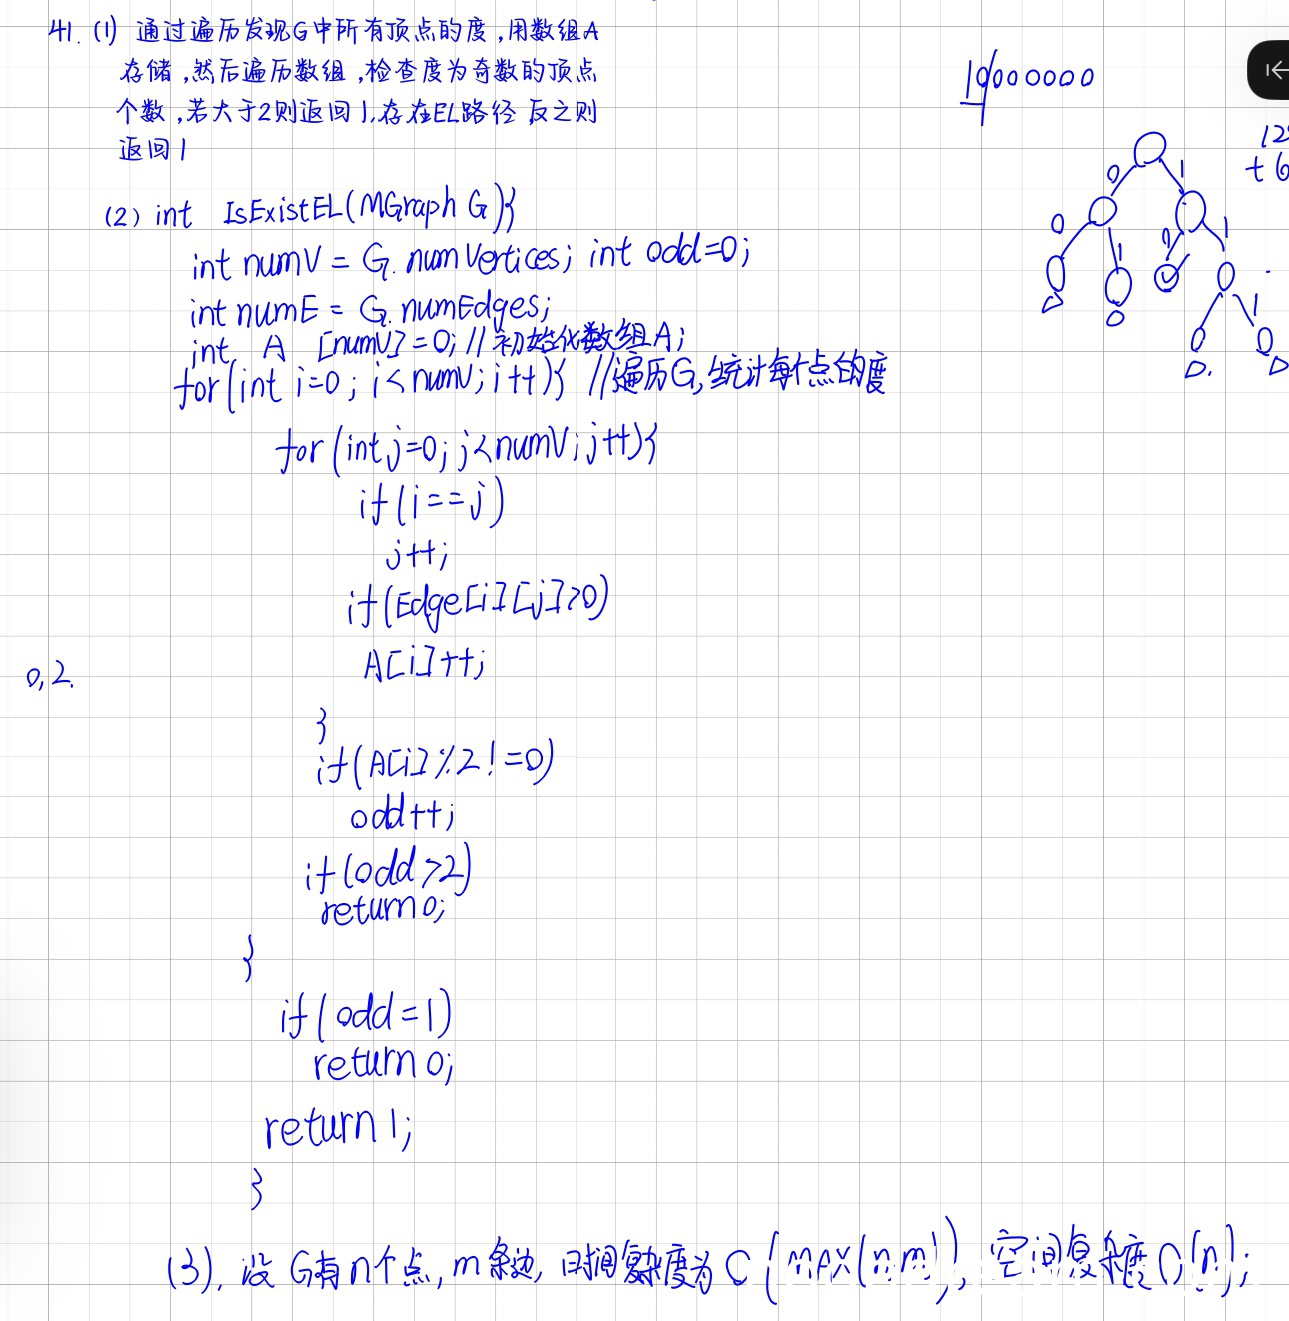 41. (1) 通过遍历发现G中所有顶点的度,用数组A
存储,然后遍历数组,检查度为奇数的顶点
个数,若大于2则返回1.存在EL路径 反之则
返回1
(2) int IsExistEL(MGraph G){
int numV = G.numVertices; int odd=0;
int numE = G.numEdges;
int A [numV]=0; //初始化数组A;
for(int i=0; i<numV; i++){ //遍历G,统计每个点的度
for(int j=0; j<numV; j++){
if(i==j)
j++;
if(Edge[i][j]>0)
A[i]++;
}
if(A[i]%2!=0)
odd++;
if(odd>2)
return 0;
}
if(odd=1)
return 0;
return 1;
}
(3). 设G有n个点, m条边, 时间复杂度为O(max(n,m)), 空间复杂度O(n);
0,2.
10000000
0 1
0 1 0 1
0 1